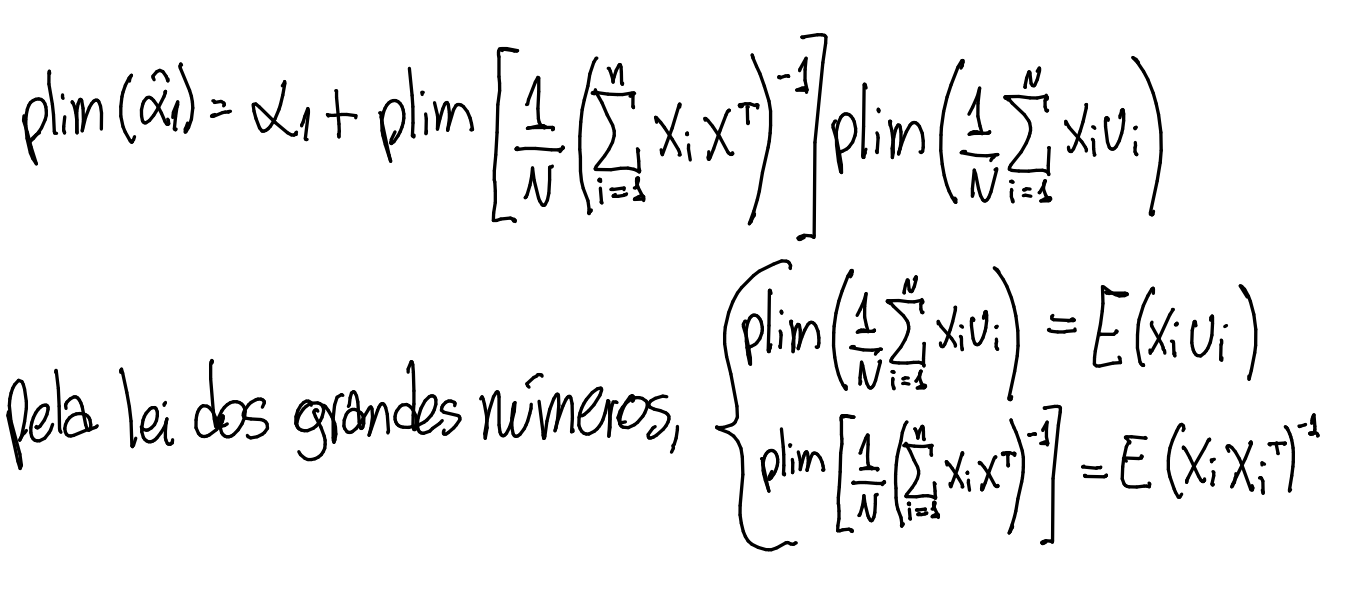 plim(α̂₁) = α₁ + plim [1/N (∑ᵢ₌₁ⁿ Xᵢ Xᵀ)⁻¹] plim (1/N ∑ᵢ₌₁ᴺ Xᵢ Uᵢ)
Pela lei dos grandes números, { plim (1/N ∑ᵢ₌₁ᴺ Xᵢ Uᵢ) = E(Xᵢ Uᵢ)
plim [1/N (∑ᵢ₌₁ⁿ Xᵢ Xᵀ)⁻¹] = E(Xᵢ Xᵢᵀ)⁻¹